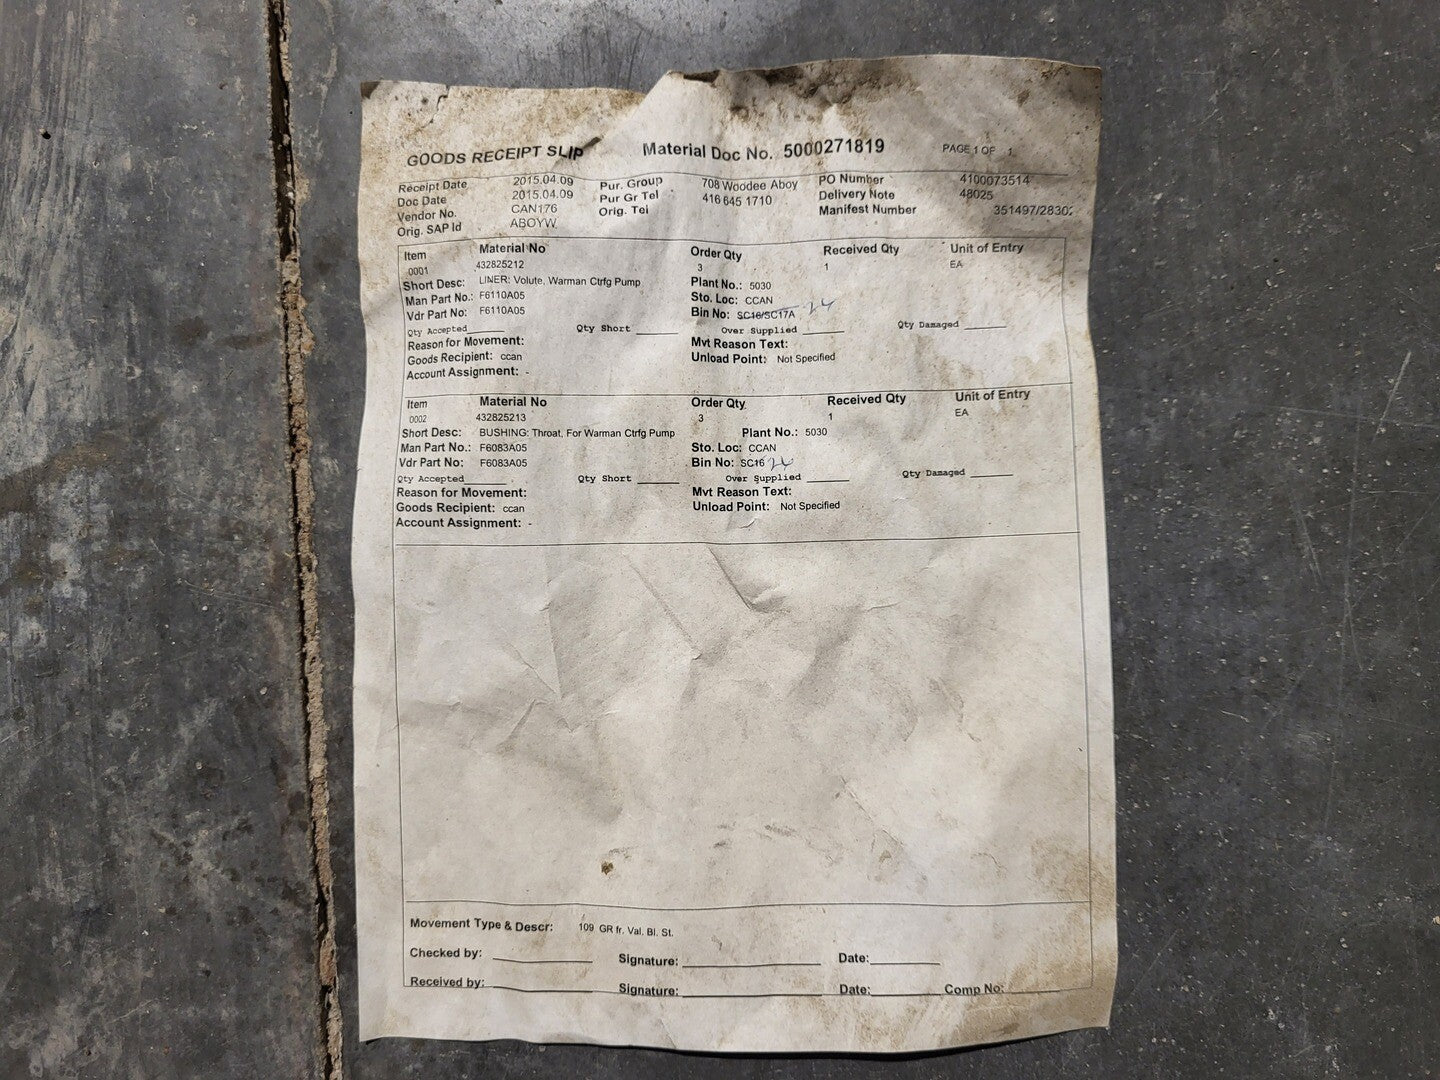 GOODS RECEIPT SLIP Material Doc No. 5000271819 PAGE 1 OF 1
Receipt Date 2015.04.09 Pur. Group 708 Woodee Aboy PO Number 4100073514
Doc Date 2015.04.09 Pur Gr Tel 416 645 1710 Delivery Note 48025
Vendor No. CAN176 Orig. Tel Manifest Number 351497/28302
Orig. SAP Id ABOYW
Item Material No Order Qty Received Qty Unit of Entry
0001 432825212 3 1 EA
Short Desc: LINER: Volute, Warman Ctrfg Pump Plant No.: 5030
Man Part No.: F6110A05 Sto. Loc: CCAN
Vdr Part No: F6110A05 Bin No: SC16/SC17A 24
Qty Accepted Qty Short Over Supplied Qty Damaged
Reason for Movement: Mvt Reason Text:
Goods Recipient: ccan Unload Point: Not Specified
Account Assignment: -
Item Material No Order Qty Received Qty Unit of Entry
0002 432825213 3 1 EA
Short Desc: BUSHING: Throat, For Warman Ctrfg Pump Plant No.: 5030
Man Part No.: F6083A05 Sto. Loc: CCAN
Vdr Part No: F6083A05 Bin No: SC16 24
Qty Accepted Qty Short Over Supplied Qty Damaged
Reason for Movement: Mvt Reason Text:
Goods Recipient: ccan Unload Point: Not Specified
Account Assignment: -
Movement Type & Descr: 109 GR fr. Val. Bl. St.
Checked by: Signature: Date:
Received by: Signature: Date: Comp No: